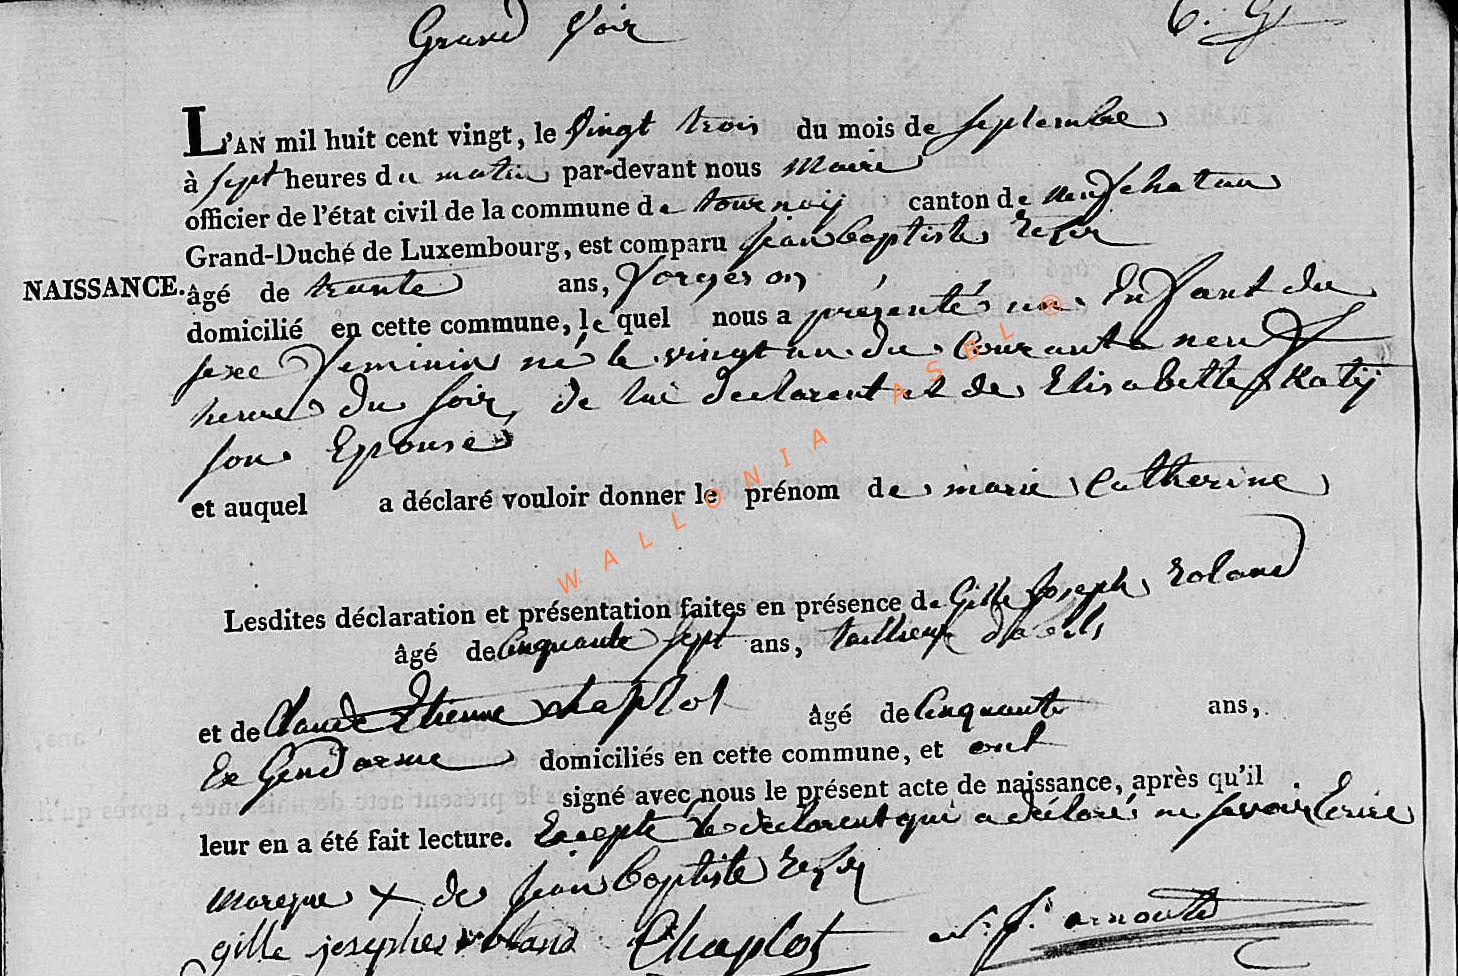 Grand Voir
6. G
L'AN mil huit cent vingt, le vingt trois du mois de septembre
à sept heures du matin par-devant nous maire
officier de l'état civil de la commune de tournaij canton de neufchatau
Grand-Duché de Luxembourg, est comparu jean baptiste
NAISSANCE. âgé de trente ans, forgeron
domicilié en cette commune, le quel nous a présenté un Enfant du
sexe feminin né le vingt un du Courant a neuf
heures du soir, de lui declarent et de Elisabette Katij
son Epouse
et auquel a déclaré vouloir donner le prénom de marie Catherine
WALLONIA ASBL ®
Lesdites déclaration et présentation faites en présence de Gille joseph roland
âgé de Cinquante sept ans, tailleur d'abits
et de Claude Etienne chaplot âgé de Cinquante ans,
Ex Gendarme domiciliés en cette commune, et ont
signé avec nous le présent acte de naissance, après qu'il
leur en a été fait lecture. Excepté le declarent qui a déclaré ne savoir Ecrire
marque x de jean baptiste
gille josephe roland Chaplot N. J. arnould